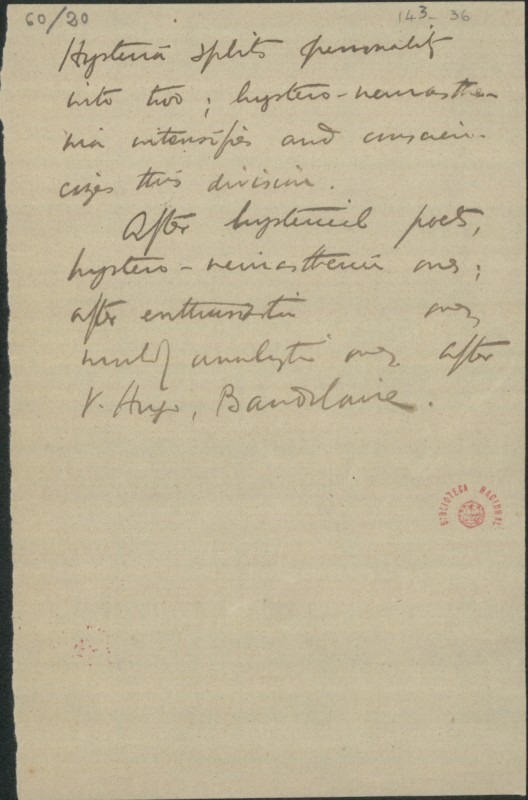 60/20
143-36
Hysteria splits personality
into two; hystero-neurasthe-
nia intensifies and conscien-
cizes this division.
After hysterical poets,
hystero-neurasthenic ones;
after enthusiastic ones
analytic ones after
V. Hugo, Baudelaire.
BIBLIOTECA NACIONAL